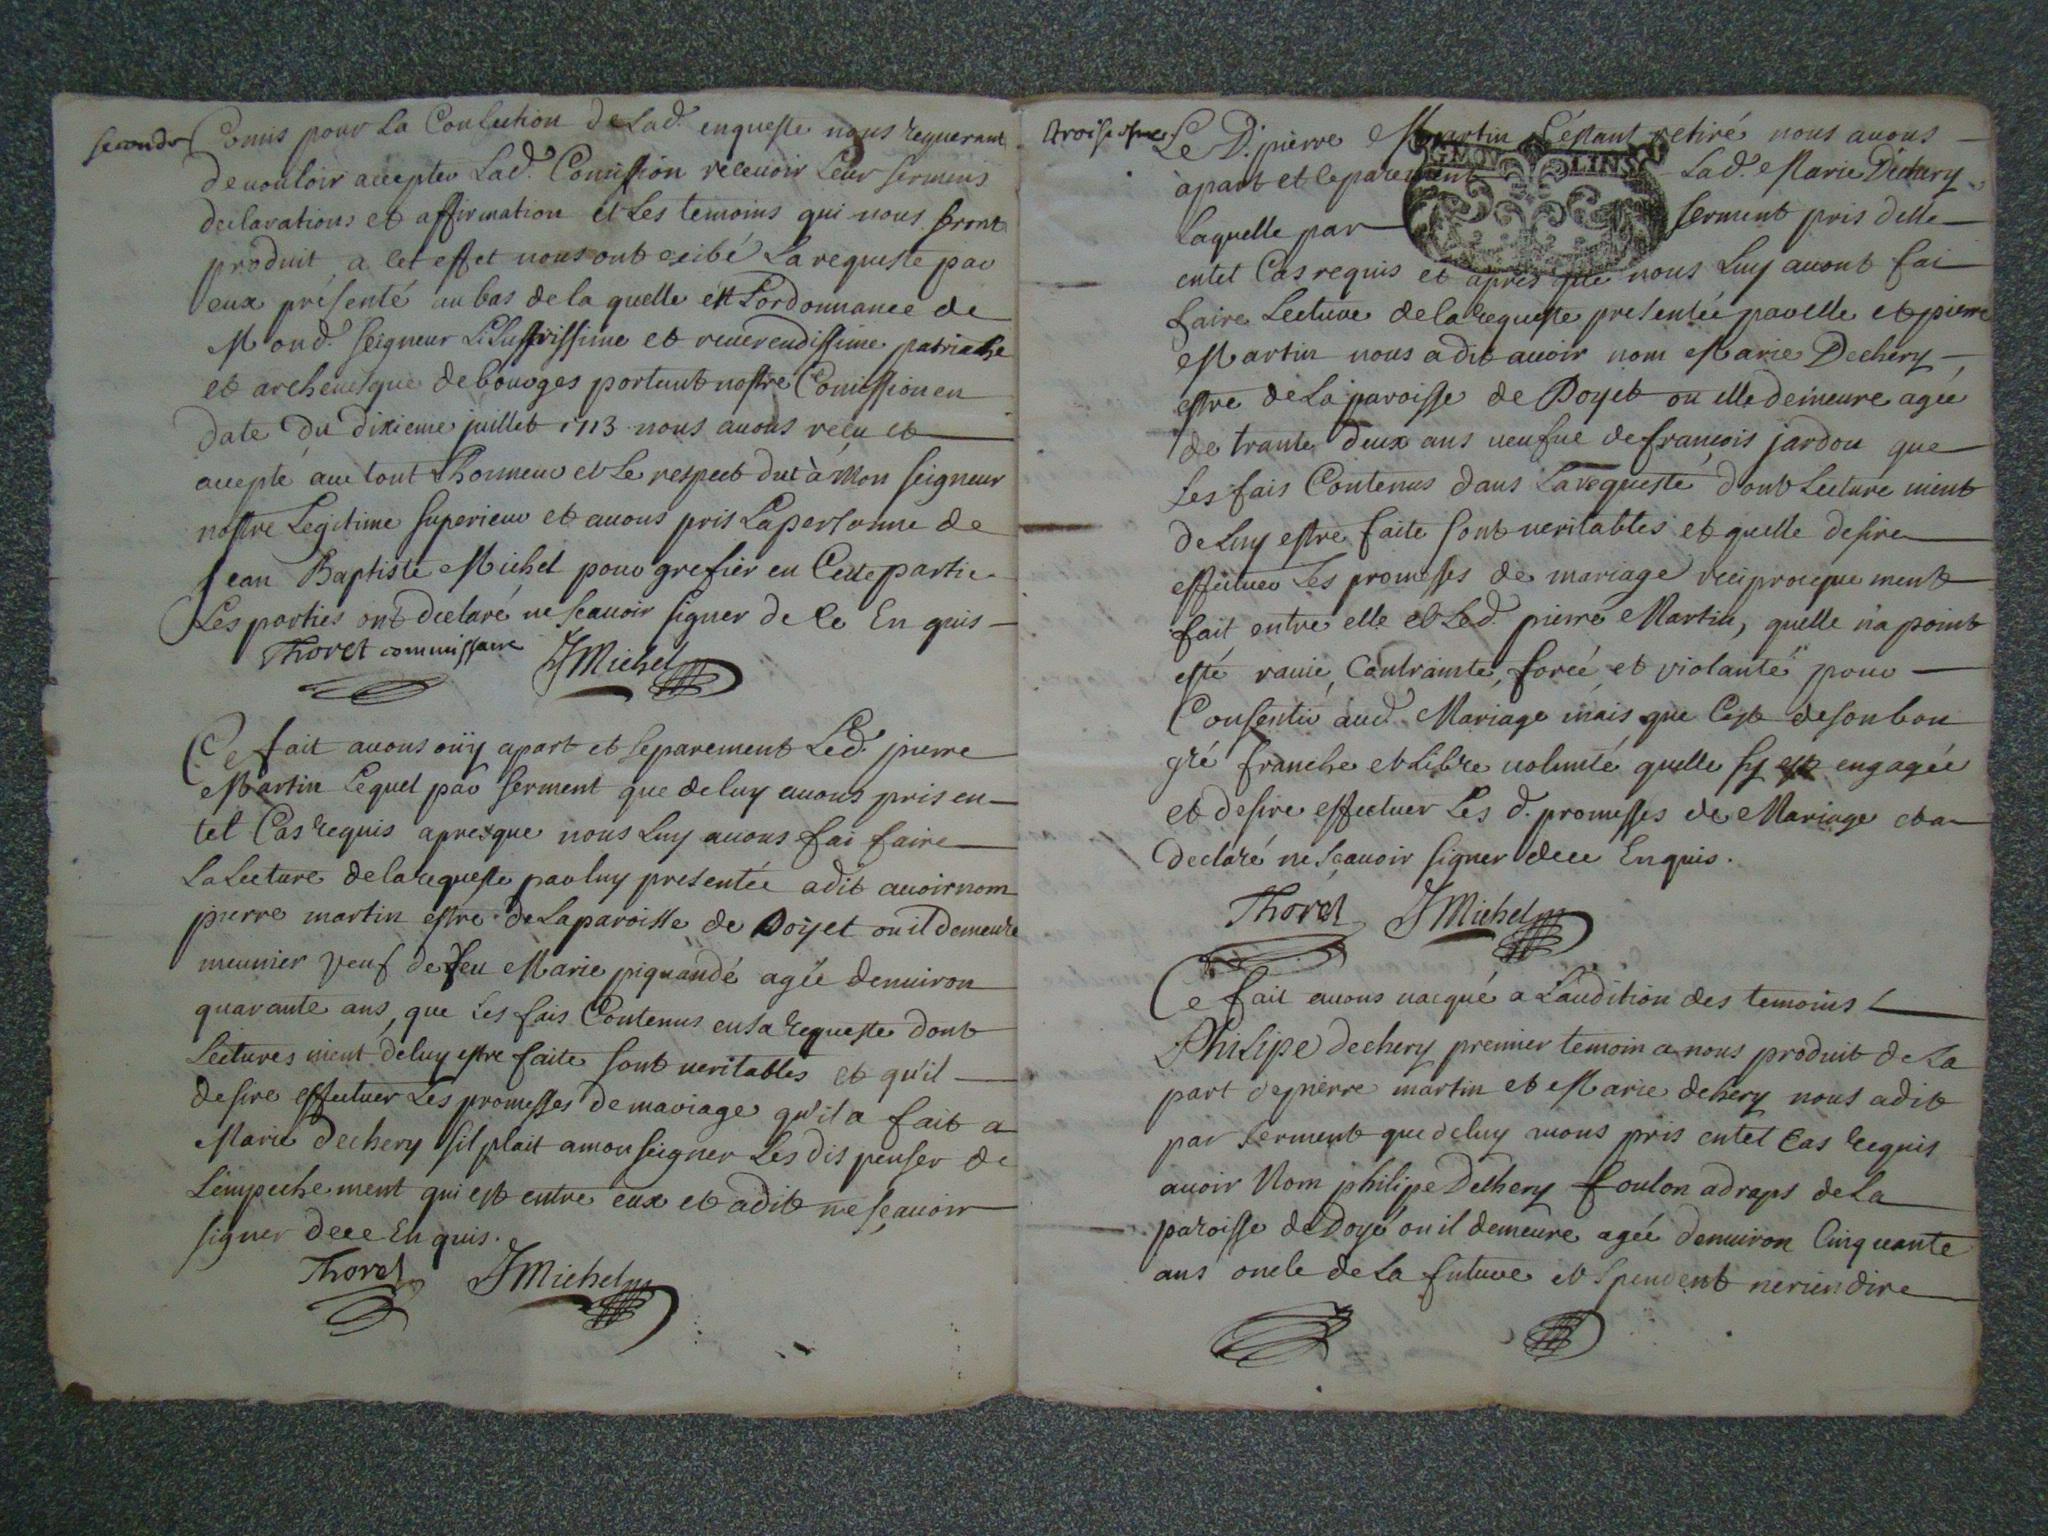 seconde
Comis pour La Confection de Lad. enqueste nous requerant
de vouloir accepter Lad. Comission recevoir Leur sermens
declarations et affirmation et Les temoins qui nous seront
produit a cet effet nous ont exibé La requeste par
eux présenté au bas de la quelle est Lordonnance de
Mond. seigneur Lilustrissime et reverendissime patriache
et archevesque de bourges portant nostre Comission en
date du dixieme juillet 1713 nous avons reçu et
accepté avec tout Lhonneur et Le respect dut à Mon seigneur
nostre Legitime superieur et avons pris La personne de
Jean Baptiste Michel pour grefier en Cette partie
Les parties ont declaré ne scavoir signer de Ce Enquis
Thoret commissaire JMichel
Ce fait avons oüy apart et separement Led. pierre
Martin Lequel par serment que de luy avons pris en
tel Cas requis apres que nous Luy avons fai faire
La Lecture de la requeste par luy presentée a dit avoir nom
pierre martin estre de La paroisse de Doyet ou il demeure
meunier veuf de feu Marie piquandé agée denuiron
quarante ans, que Les fais Contenus en sa requeste dont
Lectures uient de luy estre faite sont ueritables et qu'il
desire effectuer Les promesses de mariage qu'il a fait a
Marie dechery sil plait a mon seigner Les dispenser de
Lempechement qui est entre eux et a dit ne sçavoir
signer de ce Enquis.
Thoret JMichel
troisieme
Le D. pierre Martin s'estant retiré nous avons
apart et separement Lad. Marie Dechery
Laquelle par serment pris delle
en tel Cas requis et apres que nous Luy avont fai
faire Lecture de la requeste presentée par elle et pierre
Martin nous a dit avoir nom Marie Dechery
estre de La paroisse de Doyet ou elle demeure agée
de trante deux ans ueufue de françois jardon que
Les fais Contenus dans La requeste dont Lecture uient
de Luy estre faite sont ueritables et quelle desire
effectuer Les promesses de mariage reciproquement
fait entre elle et Led. pierre Martin, quelle n'a point
esté rauie, Contrainte, forcée et violanté pour
Consentir aud. Mariage mais que Cest de son bon
gré franche et Libre uolunté quelle sy est engagée
et desire effectuer Les d. promesses de Mariage et a
declaré ne sçavoir signer de ce Enquis.
Thoret JMichel
Ce fait avons uacqué a Laudition des temoins
Philipe dechery premier temoin a nous produit de La
part de pierre martin et Marie dechery nous a dit
par serment que de luy avons pris en tel Cas requis
avoir Nom philipe Dechery foulon a draps de La
paroisse de Doyé ou il demeure agée denuiron Cinquante
ans oncle de La future et ne rien dire